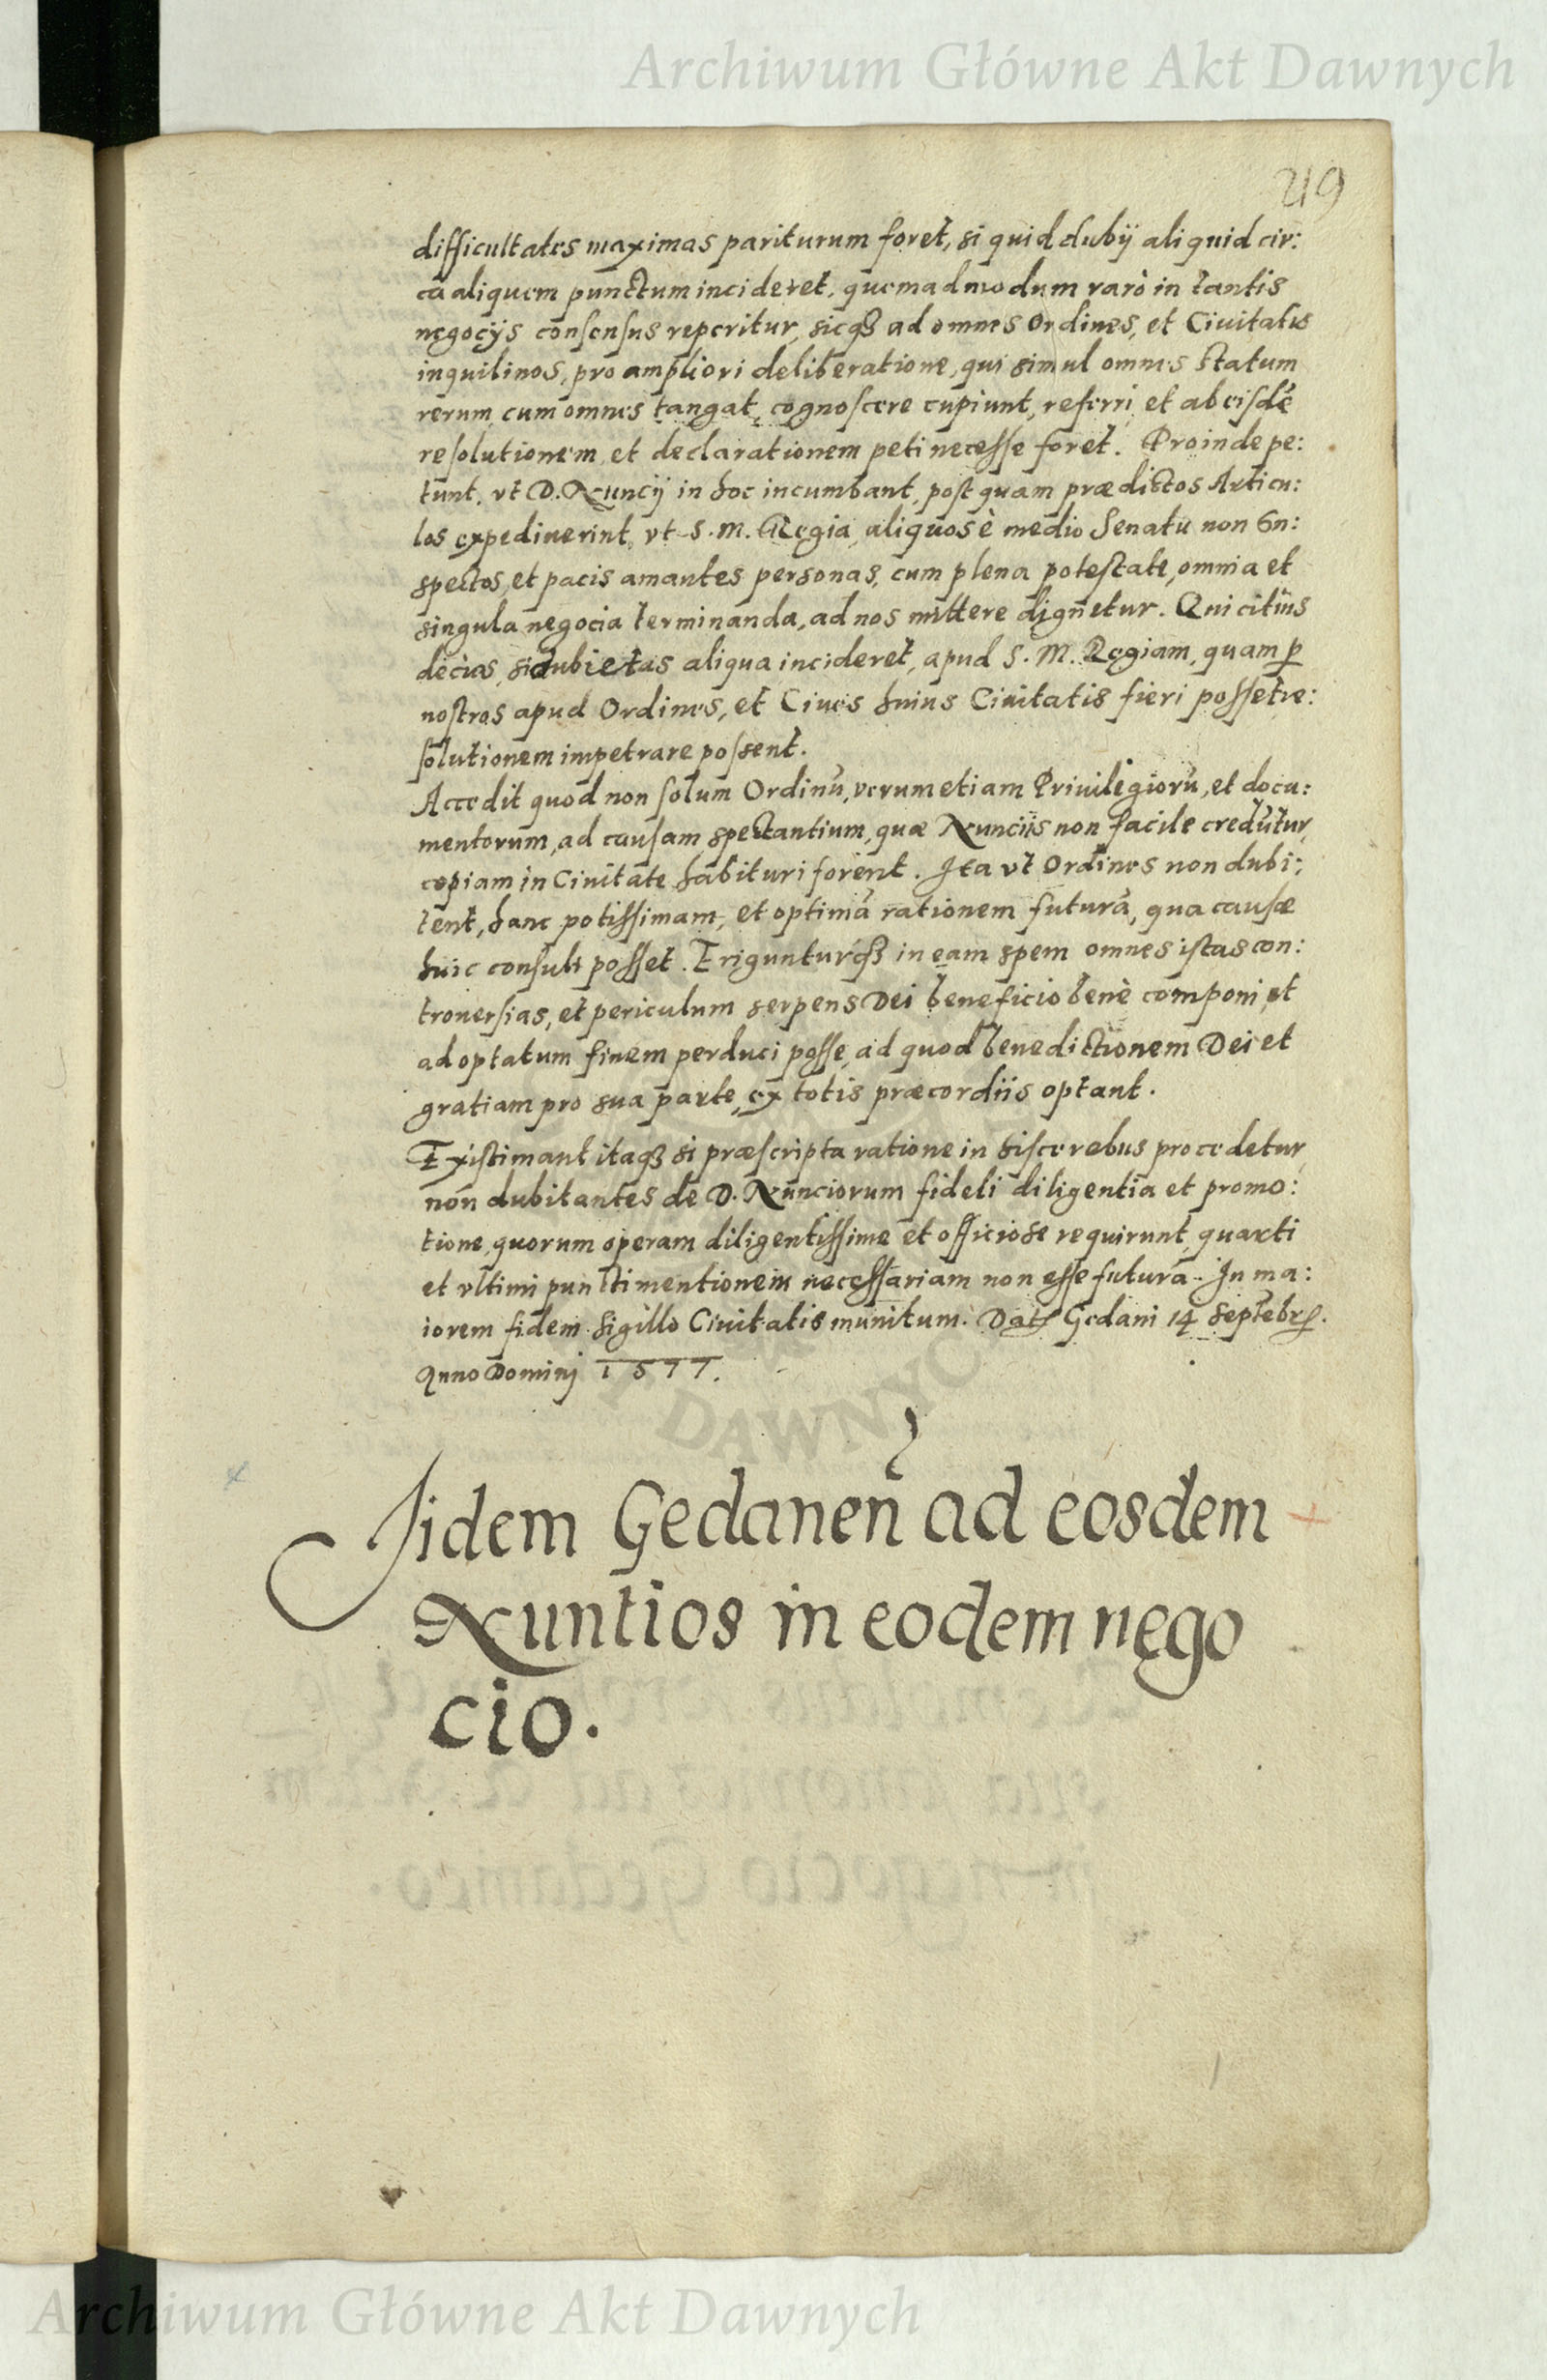 Archiwum Główne Akt Dawnych
219
difficultates maximas pariturum foret, si quid dubij aliquid cir:
ca aliquem punctum incideret, quemadmodum rarò in tantis
negocijs consensus reperitur, sicq3 ad omnes Ordines, et Ciuitatis
inquilinos, pro ampliori deliberatione, qui simul omnes statum
rerum, cum omnes tangat, cognoscere cupiunt, referri, et ab eisdē
resolutionem, et declarationem peti necesse foret. Proinde pe:
tunt, vt D. Nuncij in hoc incumbant, postquam prædictos Articu:
los expediuerint, vt S. M. Regia, aliquos è medio Senatu non
spectos, et pacis amantes personas, cum plena potestate, omnia et
singula negocia terminanda, ad nos mittere dignetur. Qui citius
decies, si dubietas aliqua incideret, apud S. M. Regiam, quam ꝑ
nostros apud Ordines, et Ciues huius Ciuitatis fieri posset re:
solutionem impetrare possent.
Accedit quod non solum Ordinū, verumetiam Priuilegiorū, et docu:
mentorum, ad causam spectantium, quæ Nuncijs non facile credūtur,
copiam in Ciuitate habituri forent. Ita vt Ordines non dubi:
tent, hanc potissimam, et optimā rationem futurā, qua causæ
huic consuli posset. Erigunturq3 in eam spem omnes istas con:
trouersias, et periculum serpens Dei beneficio benè componi, et
ad optatum finem perduci posse, ad quod benedictionem Dei et
gratiam pro sua parte, ex totis præcordiis optant.
Existimant itaq3 si præscripta ratione in hisce rebus procedetur,
non dubitantes de D. Nunciorum fideli diligentia et promo:
tione, quorum operam diligentissime et officiose requirunt, quarti
et vltimi puncti mentionem necessariam non esse futurā. In ma:
iorem fidem sigillo Ciuitatis munitum. Dat Gedani 14 Septēbr.
Anno Domini 1577.
Iidem Gedanen̄ ad eosdem
Nuntios in eodem nego
cio.
DAWNYC
Archiwum Główne Akt Dawnych